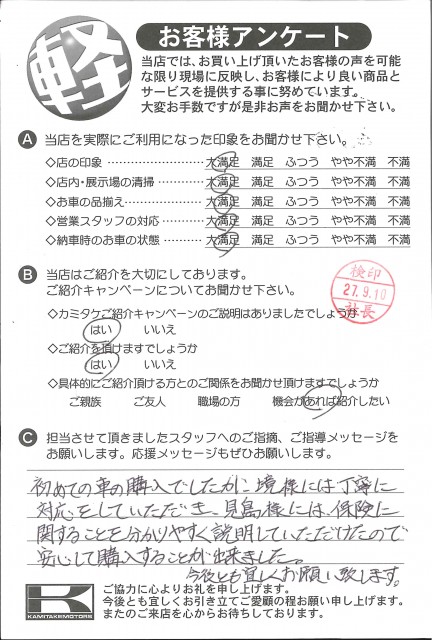 軽
お客様アンケート
当店では、お買い上げ頂いたお客様の声を可能
な限り現場に反映し、お客様により良い商品と
サービスを提供する事に努めています。
大変お手数ですが是非お声をお聞かせ下さい。
A 当店を実際にご利用になった印象をお聞かせ下さい。
◇店の印象 …………………… 大満足 満足 ふつう やや不満 不満
◇店内・展示場の清掃 ………… 大満足 満足 ふつう やや不満 不満
◇お車の品揃え ………………… 大満足 満足 ふつう やや不満 不満
◇営業スタッフの対応 ………… 大満足 満足 ふつう やや不満 不満
◇納車時のお車の状態 ………… 大満足 満足 ふつう やや不満 不満
B 当店はご紹介を大切にしてあります。
ご紹介キャンペーンについてお聞かせ下さい。
検印
27.9.10
社長
◇カミタケご紹介キャンペーンのご説明はありましたでしょうか
はい いいえ
◇ご紹介を頂けますでしょうか
はい いいえ
◇具体的にご紹介頂ける方とのご関係をお聞かせ頂けますでしょうか
ご親族 ご友人 職場の方 機会があれば紹介したい
C 担当させて頂きましたスタッフへのご指摘、ご指導メッセージを
お願いします。応援メッセージもぜひお願いします。
初めての車の購入でしたが、境様には丁寧に
対応をしていただき、見島様には、保険に
関することを分かりやすく説明していただけたので
安心して購入することが出来ました。
今後とも宜しくお願い致します。
K
KAMITAKEMOTORS
ご協力に心よりお礼を申し上げます。
今後とも宜しくお引き立てご愛顧の程お願い申し上げます。
またのご来店を心からお待ちしております。